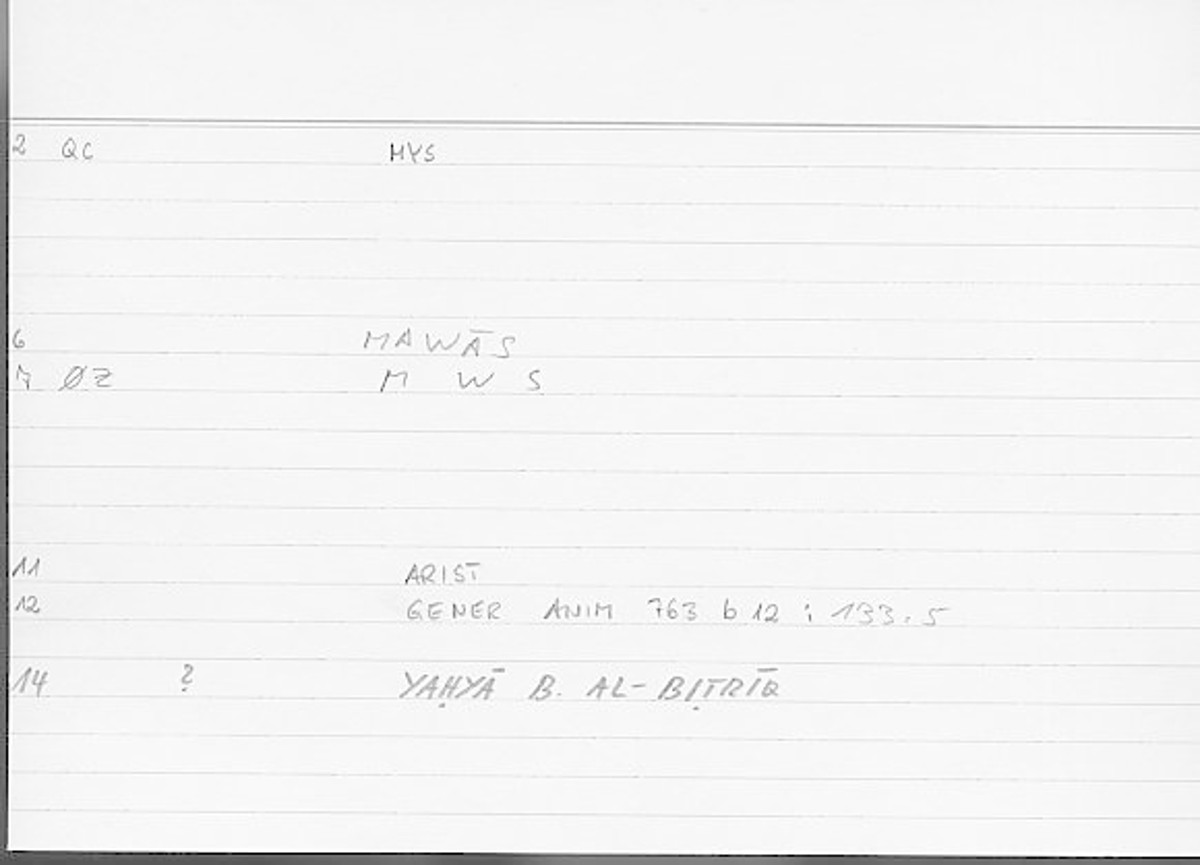 2 QC MYS
6 MAWĀS
7 ØZ M W S
11 ARIST
12 GENER ANIM 763 b 12 ; 133.5
14 ? YAḤYĀ B. AL-BIṬRĪQ